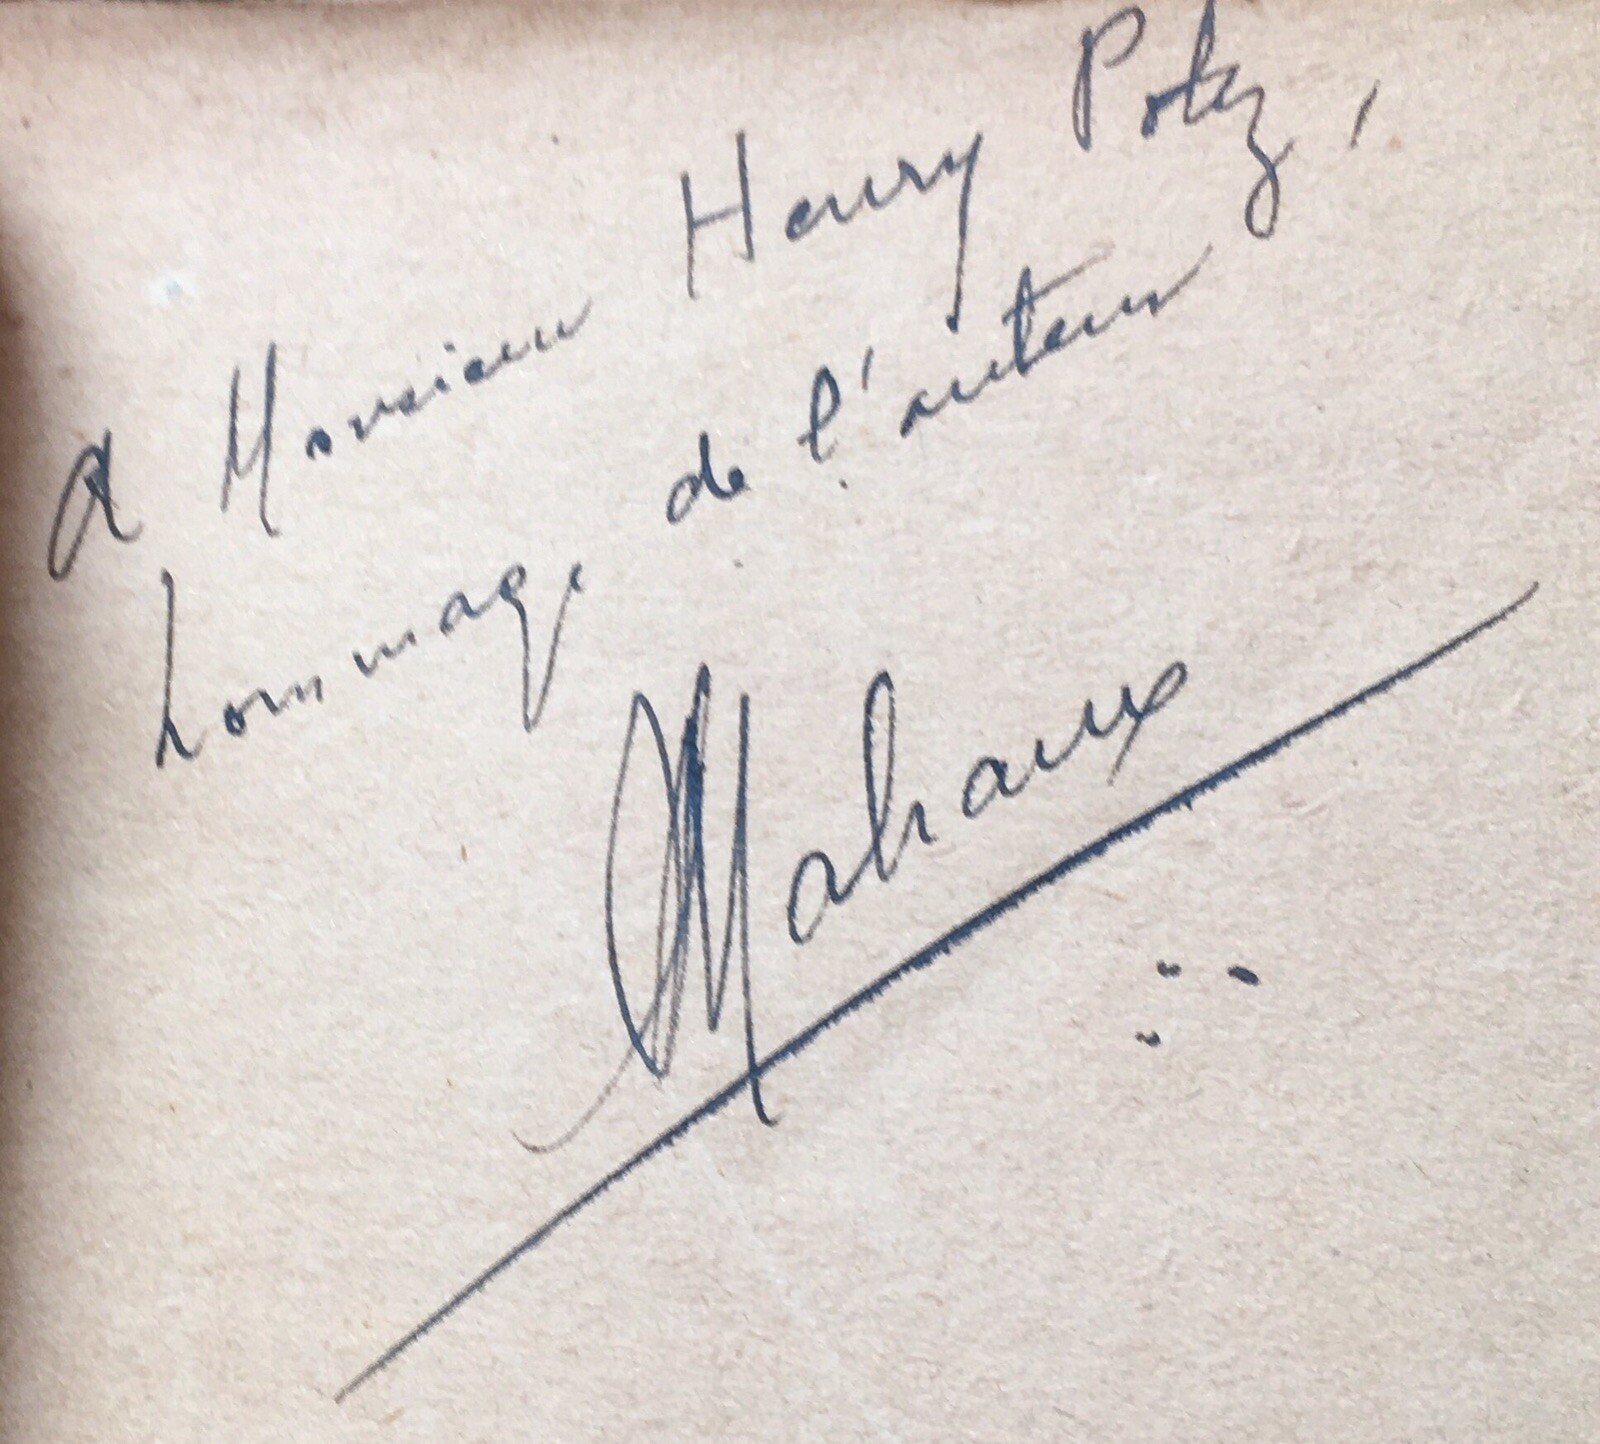 A Monsieur Henry Potez,
hommage de l'auteur
Mahaux